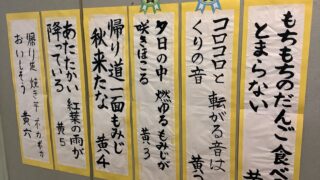 もちもちのだんご食べ
とまらない
コロコロと 転がる音は
くりの音
黄2
夕日の中 燃ゆるもみじが
咲きほこる
黄3
帰り道 一面もみじ
秋来たな
黄4
あたたかい 紅葉の雨が
降っている
黄5
帰り道 焼き芋 ホカホカ
おいしそう
黄六